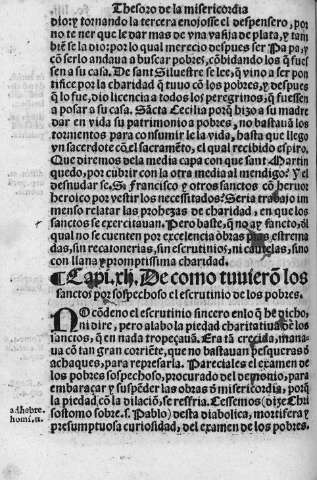 Thesoro de la misericordia
dio: y tornando la tercera enojosse el despensero, por
no te ner que le dar mas de vna vasija de plata, y tam
biẽ se la dio: por lo qual merecio despues ser Pa pa, y
cõ serlo andaua a buscar pobres, cõbidando los q̃ fues
sen a su casa. De sant Siluestre se lee, q̃ vino a ser pon
tifice por la charidad q̃ tuuo cõ los pobres, y despues
q̃ lo fue, dio licencia a todos los peregrinos, q̃ fuessen
a posar a su casa. Sãcta Cecilia porq̃ hizo a su madre
dar en vida su patrimonio a pobres, no bastauã los
tormentos para consumir le la vida, hasta que llego
vn sacerdote cõ el sacramẽto, el qual recibido espiro.
Que diremos de la media capa con que sant Martin
quedo, por cubrir con la otra media al mendigo? Y el
desnudar se S. Francisco y otros sanctos cõ heruor
heroico por vestir los necessitados? Seria trabajo im
menso relatar las prohezas de charidad, en que los
sanctos se exercitauan. Pero baste, q̃ no ay sancto, d̃l
qual no se cuenten por excelencia obras pias estrema
das, sin recatonerias, sin escrutinios, ni cautelas, sino
con llana y promptissima charidad.
¶ Capi. xlj. De como tuuierõ los
sanctos por sospechoso el escrutinio de los pobres.
NO cõdeno el escrutinio sincero enlo q̃ he dicho,
ni dire, pero alabo la piedad charitatiua de los
sanctos, q̃ en nada tropeçauã. Era tã crecida, mana-
ua cõ tan gran corriẽte, que no bastauan pesqueras o
achaques, para represarla. Parecia les el examen de
los pobres sospechoso, procurado del demonio, para
embaraçar y suspẽder las obras d̃ misericordia, porq̃
la piedad, cõ la dilaciõ, se resfria. Cessemos (dize Chri
adhebre.
homi. 11.
sostomo sobre. s. Pablo) desta diabolica, mortifera y
presumptuosa curiosidad, del examen de los pobres.